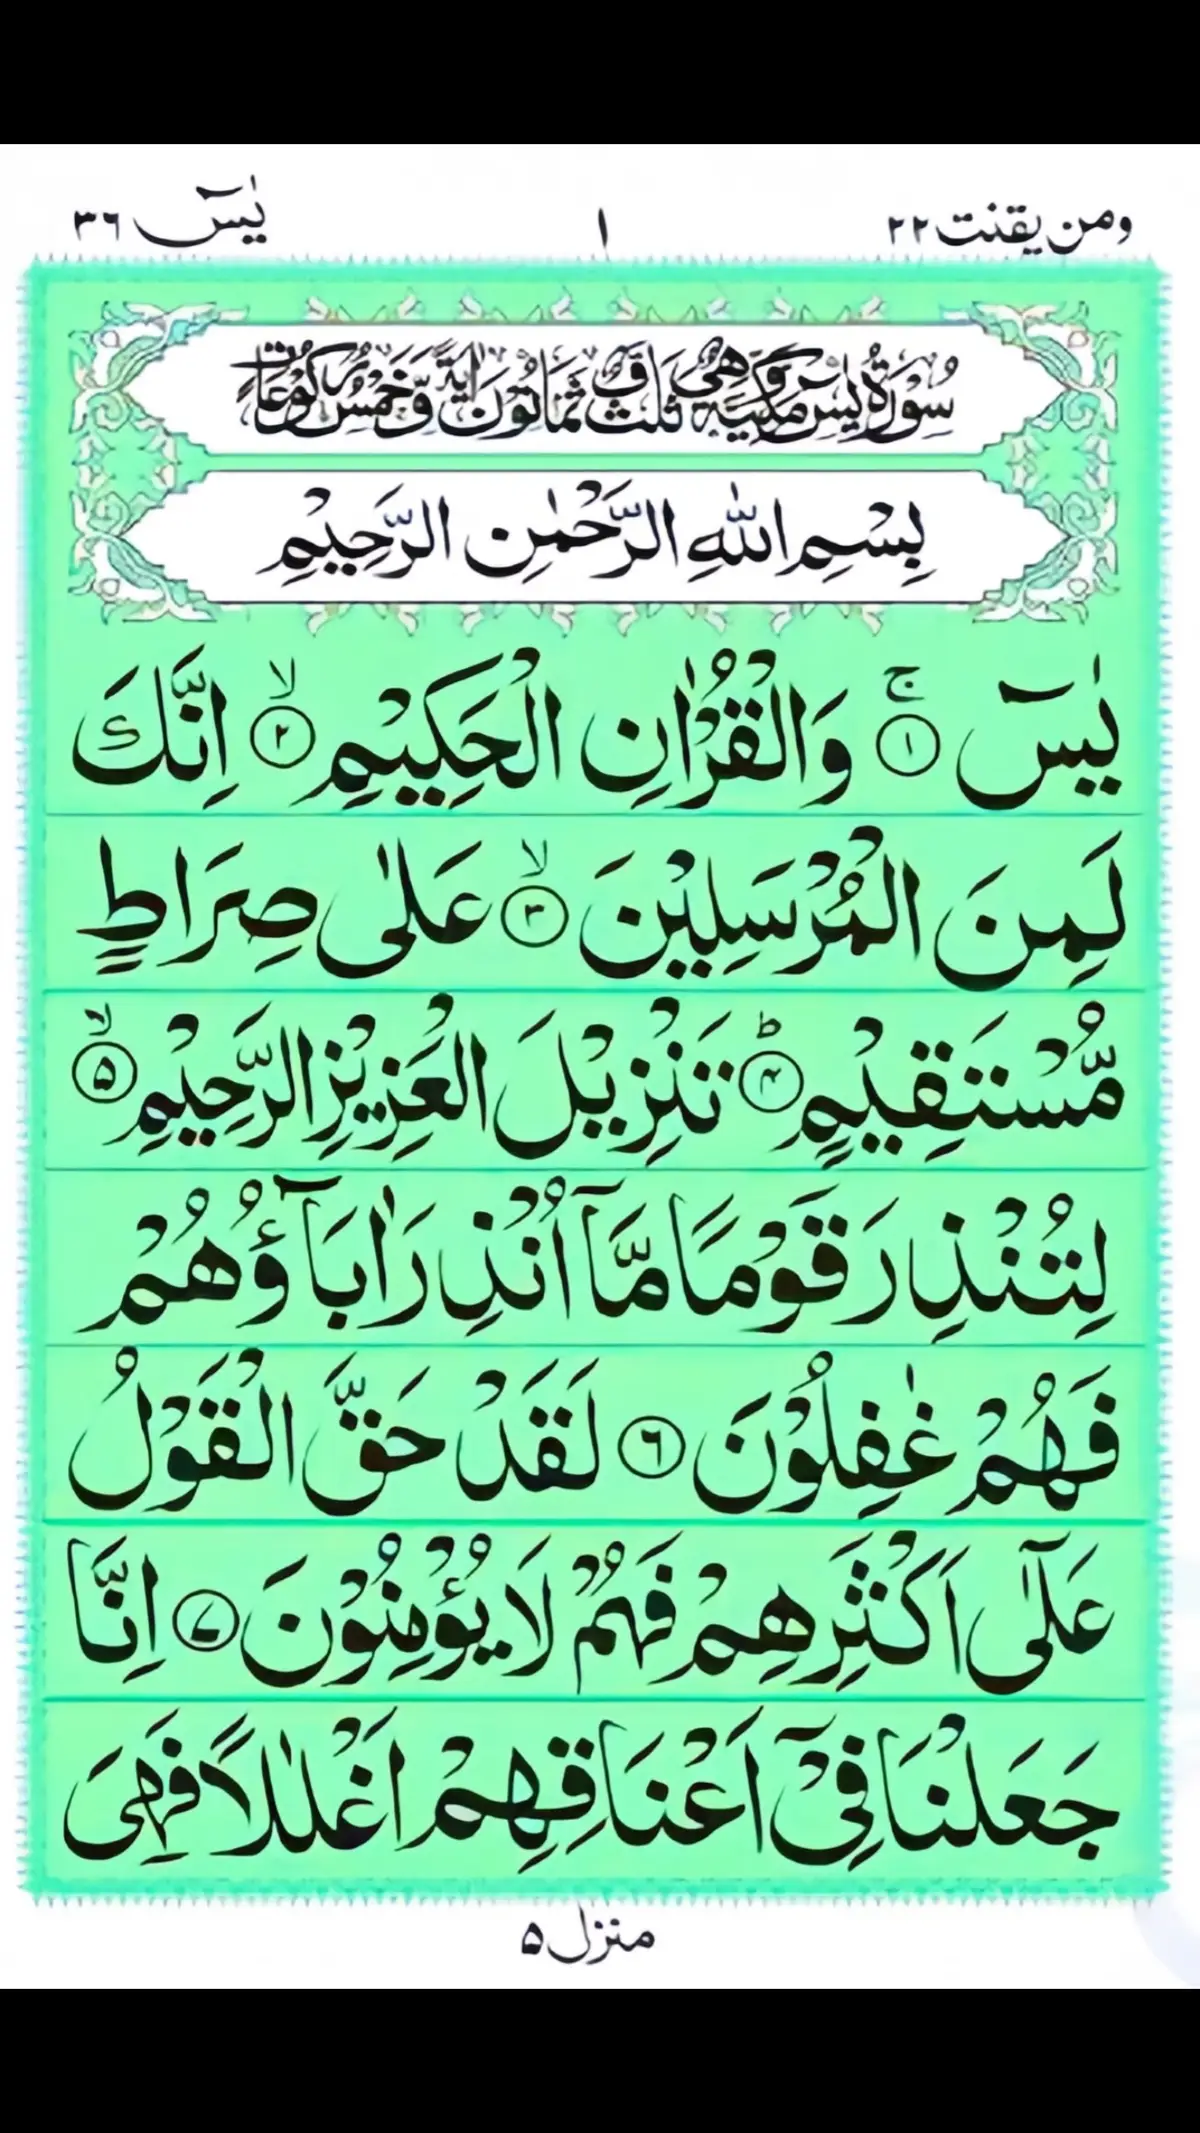 ومن یقنت ۲۲ ۱ یٰسٓ ۳۶
سُوْرَةُ یٰسٓ مَكِّیَّةٌ وَّهِیَ ثَلٰثٌ وَّثَمَانُوْنَ اٰیَةً وَّخَمْسُ رُكُوْعَاتٍ
بِسْمِ اللّٰهِ الرَّحْمٰنِ الرَّحِیْمِ
یٰسٓ ۚ﴿۱﴾ وَالْقُرْاٰنِ الْحَكِیْمِ ۙ﴿۲﴾ اِنَّكَ
لَمِنَ الْمُرْسَلِیْنَ ۙ﴿۳﴾ عَلٰی صِرَاطٍ
مُّسْتَقِیْمٍ ؕ﴿۴﴾ تَنْزِیْلَ الْعَزِیْزِ الرَّحِیْمِ ۙ﴿۵﴾
لِتُنْذِرَ قَوْمًا مَّاۤ اُنْذِرَ اٰبَآؤُهُمْ
فَهُمْ غٰفِلُوْنَ ﴿۶﴾ لَقَدْ حَقَّ الْقَوْلُ
عَلٰۤی اَكْثَرِهِمْ فَهُمْ لَا یُؤْمِنُوْنَ ﴿۷﴾ اِنَّا
جَعَلْنَا فِیْۤ اَعْنَاقِهِمْ اَغْلٰلًا فَهِیَ
منزل ۵